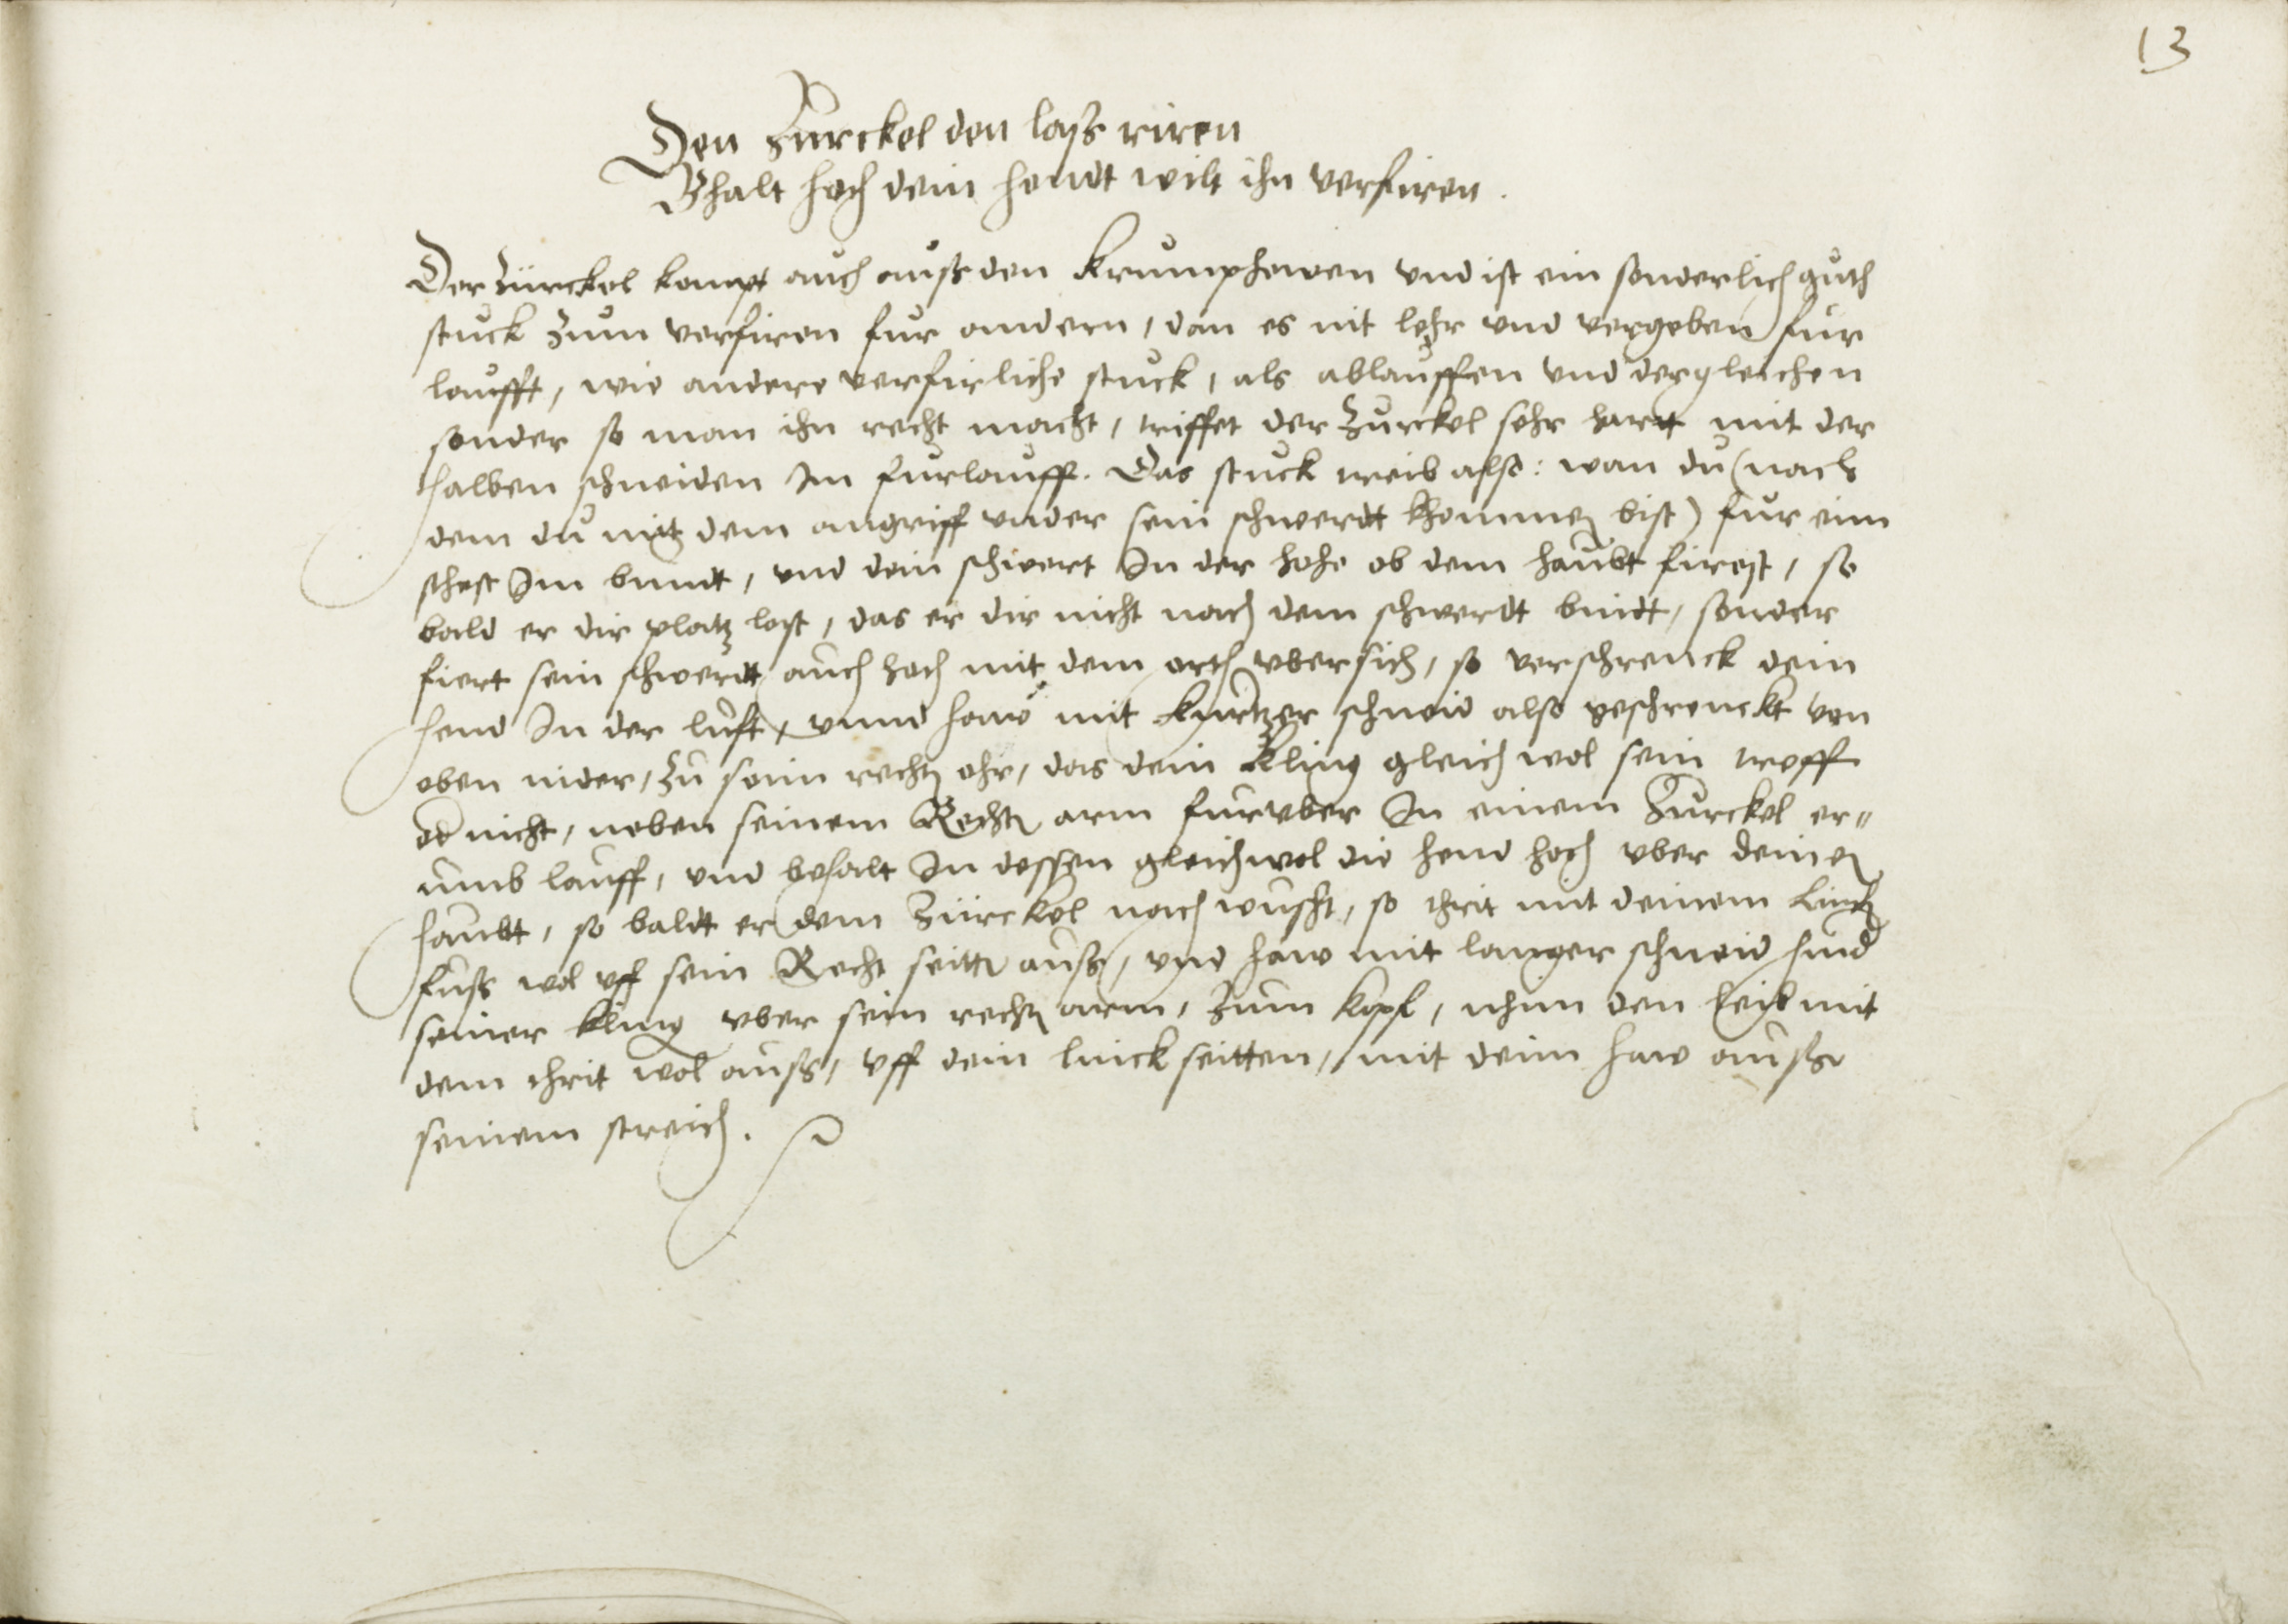 13
Den Zurckel den lass riren
Bhalt hoch dein hendt wilt ihn verfüren.
Der Zürckel kompt auch auß den Krumphewen vnd ist ein sonderlich guth
stuck zum verfiren fur andern, dan es nit lehr vnd vergeben fur
laufft, wie andere verfirliche stuck, als ablauffen vnd dergleichen
sonder so man ihn recht macht, triffet der Zurckel sehr hartt mit der
halben schneiden Im furlauff. Das stuck treib also: wan du (nach
dem du mit dem angriff vnder sein schwerdt khommen bist) fur eim
stehest Im bundt, vnd dein schwert In der hohe ob dem haubt firest, so
bald er dir platz lest, das er dir nicht nach dem schwerdt bindt, sonder
fiert sein schwerdt auch hoch mit dem orth vbersich, so verschrenck dein
hend In der luft, vnnd haw mit kurtzer schneid also geschrenckt von
oben nider, zu seim rechten ohr, das dein kling gleich wol sein treff
od nicht, neben seinem Rechten arm furvber In einem Zurckel er„
umb lauff, vnd behalt In dessen gleichwol die hend hoch vber deinem
haubt, so baldt er dem Zürckel nach wuscht, so thrit mit deinem Lincken
fuß wol vff sein Recht seitten auß, vnd haw mit langer schneid hind
seiner kling vber sein rechten arm, zum kopf, nhim den leib mit
dem thrit wol auß, vff dein linck seitten, mit deim haw ausser
seinem streich.